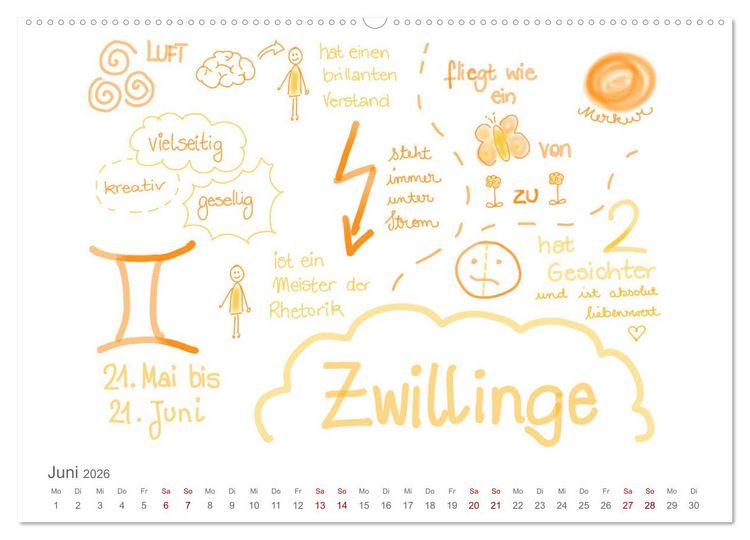 LUFT
hat einen
brillanten
Verstand
fliegt wie
ein
Merkur
vielseitig
kreativ
gesellig
steht
immer
unter
Strom
von
zu
2
hat
Gesichter
und ist absolut
liebenswert
ist ein
Meister der
Rhetorik
21. Mai bis
21. Juni
Zwillinge
Juni 2026
Mo Di Mi Do Fr Sa So Mo Di Mi Do Fr Sa So Mo Di Mi Do Fr Sa So Mo Di Mi Do Fr Sa So Mo Di
1 2 3 4 5 6 7 8 9 10 11 12 13 14 15 16 17 18 19 20 21 22 23 24 25 26 27 28 29 30